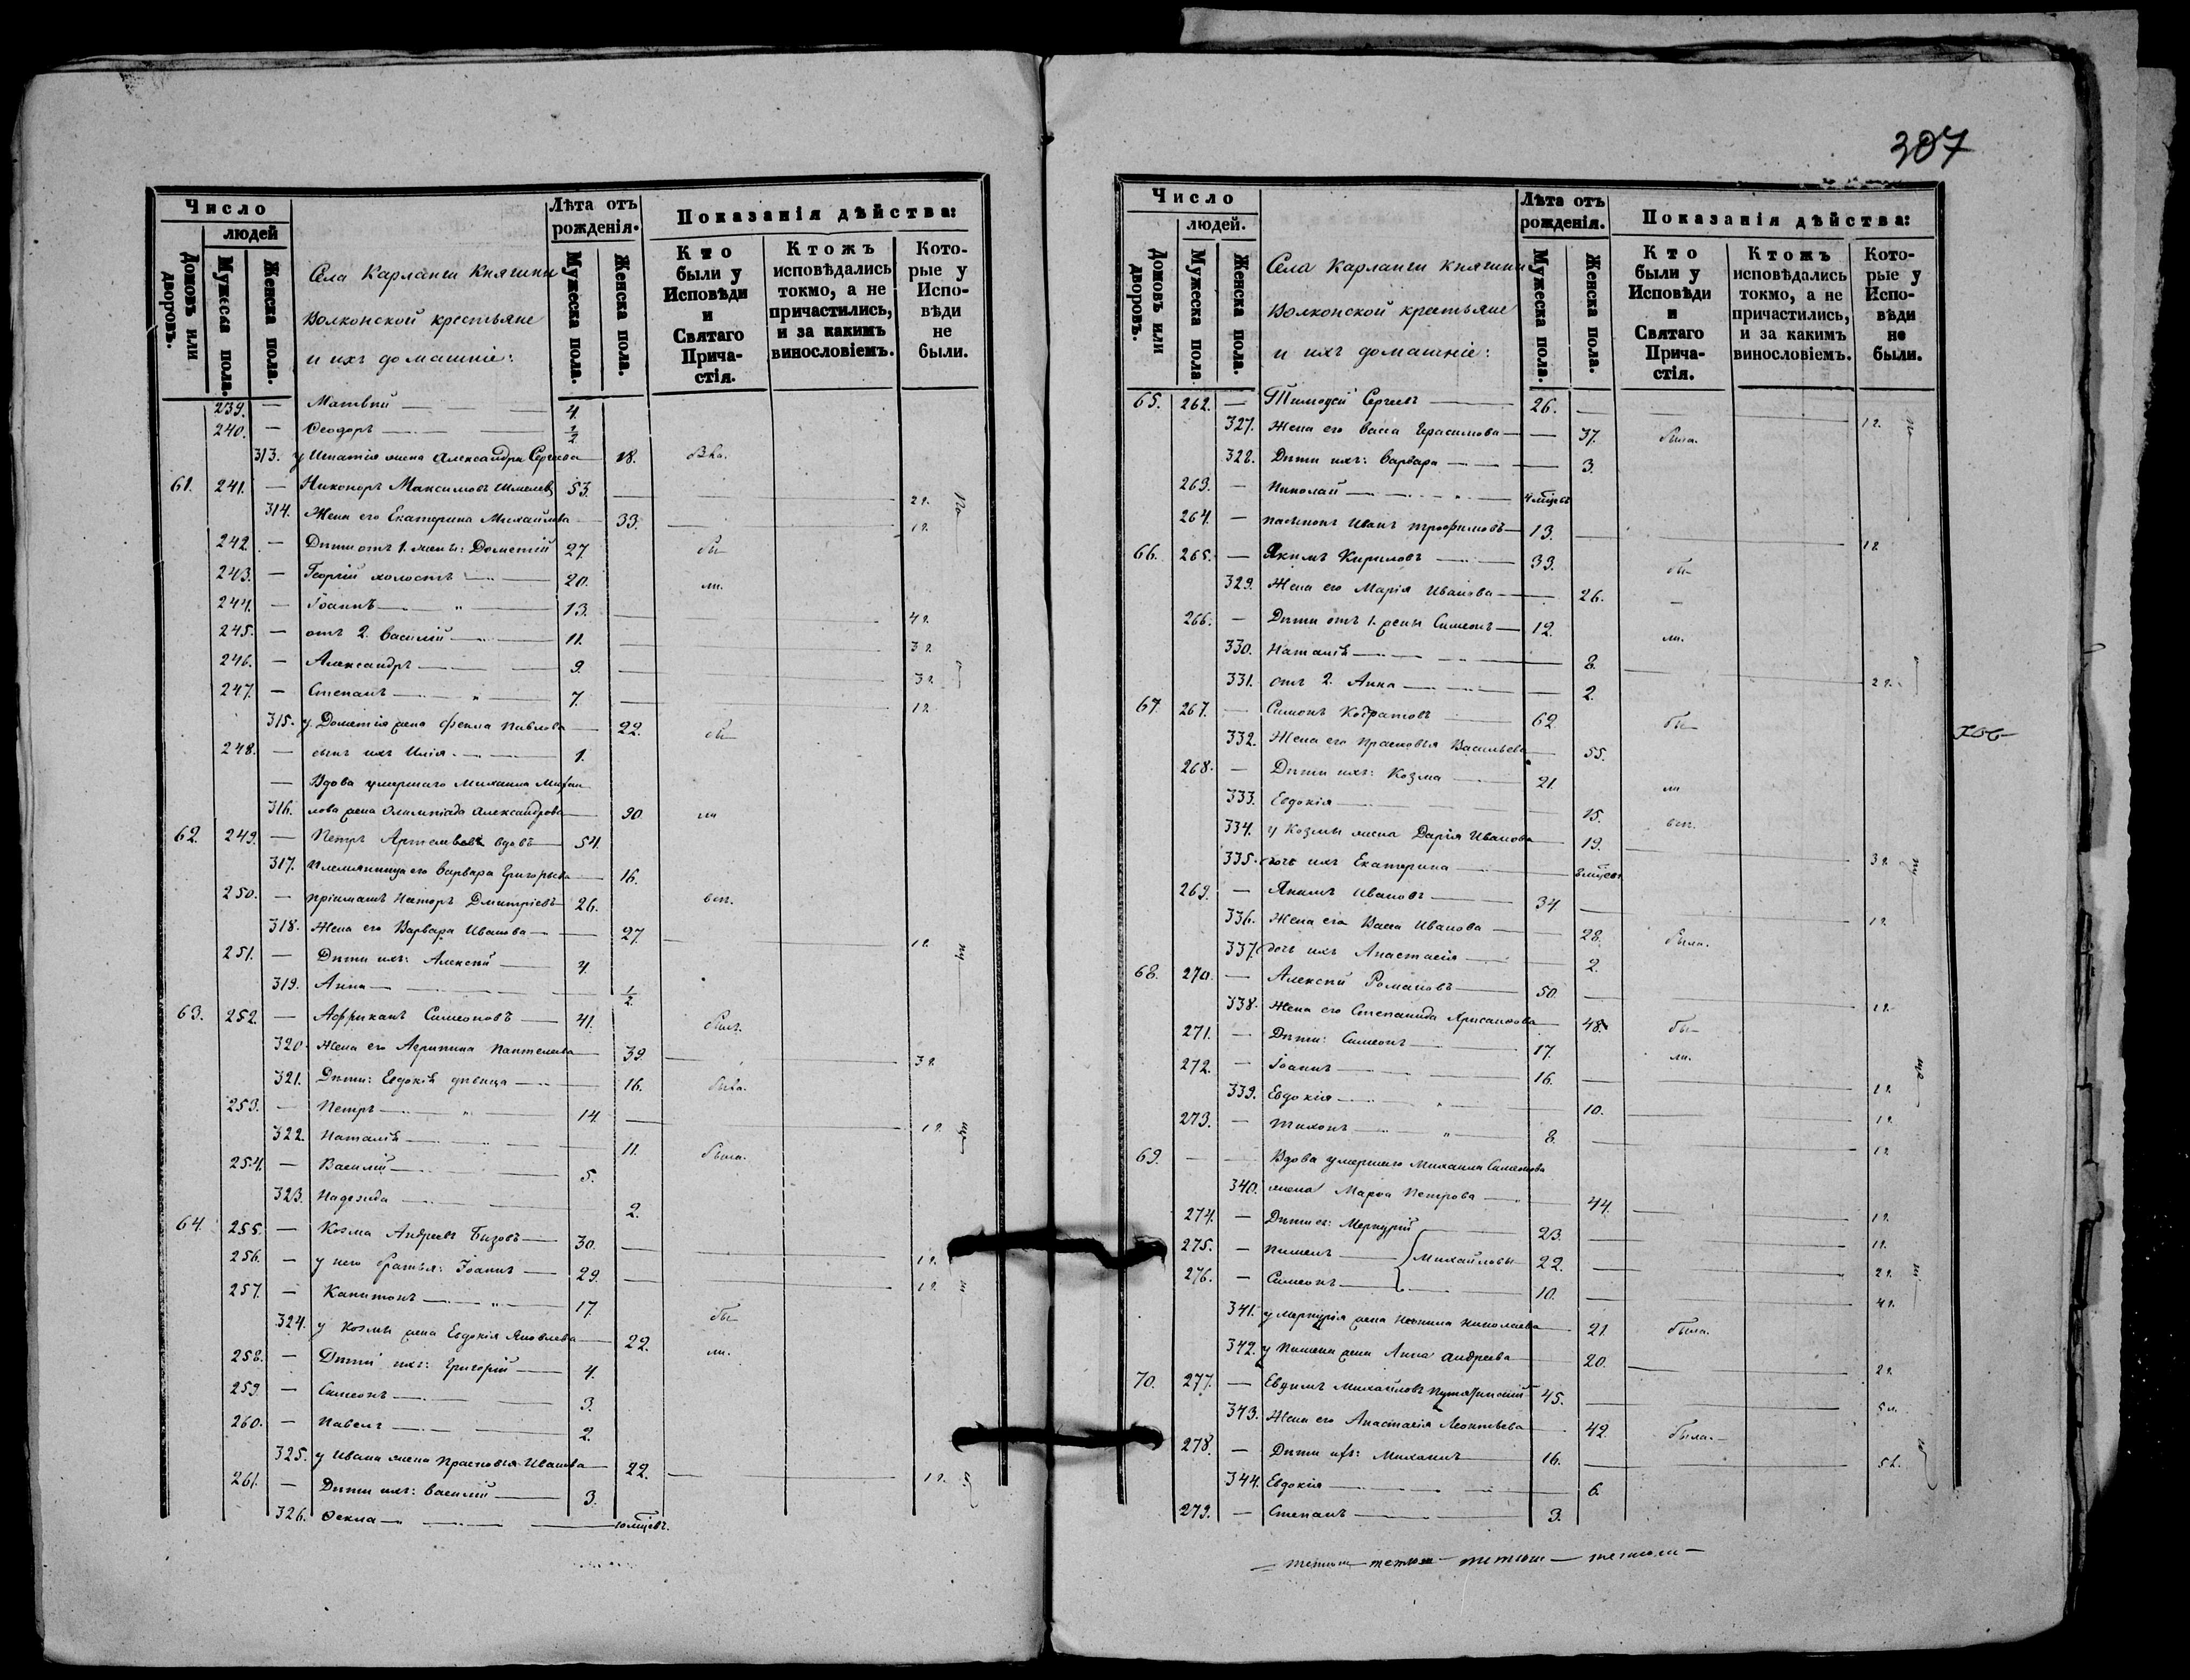 307
Число
людей
Домовъ или дворовъ.
Мужеска пола.
Женска пола.
Села Карланги Княгини
Волконской крестьяне
и ихъ домашніе:
Лѣта отъ рожденія.
Мужеска пола.
Женска пола.
Показанія дѣйства:
Кто были у Исповѣди и Святаго Причастія.
Ктожъ исповѣдались токмо, а не причастились, и за какимъ винословіемъ.
Которые у Исповѣди не были.
239. — Матвѣй 4.
240. — Ѳеодоръ 1/2
313. у Игнатія жена Александра Сергѣева 18.
61. 241. — Никоноръ Максимовъ 53. 2 г.
314. Жена его Екатерина Михайлова 33. 1 г.
242. — Дѣти отъ 1. жены: Дометій 27. бы-
243. — Георгій холостъ 20. ли.
244. — Іоаннъ 13. 4 г.
245. — отъ 2. Василій 11. 3 г.
246. — Александръ 9. 3 г.
247. — Степанъ 7. 1 г.
315. у Дометія жена Фекла Павлова 22. бы-
248. — сынъ ихъ Илія 1.
— Вдова умершаго Михаила Михаи
316. лова жена Олимпіада Александрова 30. ли
62. 249. — Петръ Артемьевъ вдовъ 54.
317. Племянница его Варвара Григорьева 16.
250. — пріимышъ Дмитріевъ 26.
318. Жена его Варвара Иванова 27. 1 г.
251. — Дѣти ихъ: Алексѣй 4.
319. Анна 1/2.
63. 252. — Африканъ Симеоновъ 41. былъ.
320. Жена его Агрипина 39. 3 г.
321. Дѣти: Евдокія дѣвица 16. была.
253. — Петръ 14. 1 г.
322. Наталія 11. была.
254. — Василій 5.
323. Надежда 2.
64. 255. — Козма Андреевъ 30. 1 г.
256. — у него братья: Іоаннъ 29. 1 г.
257. — Капитонъ 17. бы-
324. у Козмы жена Евдокія Яковлева 22. ли.
258. — Дѣти ихъ: Григорій 4.
259. — Симеонъ 3.
260. — Павелъ 2.
325. у Ивана жена Прасковья Иванова 22. 1 г.
261. — Дѣти ихъ: Василій 3.
326. Ѳекла 10 мѣсцевъ.
Число
людей.
Домовъ или дворовъ.
Мужеска пола
Женска пола.
Села Карланги княгини
Волконской крестьяне
и ихъ домашніе:
Лѣта отъ рожденія.
Мужеска пола.
Женска пола.
Показанія дѣйства:
Кто были у Исповѣди и Святаго Причастія.
Ктожъ исповѣдались токмо, а не причастились, и за какимъ винословіемъ.
Которые у Исповѣди не были.
65. 262. — Тимоѳей Сергеевъ 26. 1 г.
327. Жена его Васса Герасимова 37. была.
328. Дѣти ихъ: Варвара 3.
263. — Николай 4 мѣсцевъ
264. — пасынокъ Иванъ Трофимовъ 13. 1 г.
66. 265. — Якимъ Кириловъ 33. бы-
329. Жена его Марія Иванова 26. —
266. — Дѣти отъ 1. жены Симеонъ 12. ли.
330. Наталія 8. 2 г.
331. отъ 2. Анна 2.
67. 267. — Симонъ Кодратовъ 62. бы-
332. Жена его Прасковья Васильева 55.
268. — Дѣти ихъ: Козма 21. ли
333. Евдокія 15.
334. у Козмы жена Дарія Иванова 19. 3 г.
335. дочь ихъ Екатерина 8 мѣсцевъ
269. — Якимъ Ивановъ 34. 1 г.
336. Жена его Васса Иванова 28. была.
337. дочь ихъ Анастасія 2.
68. 270. — Алексѣй Романовъ 50. 1 г.
338. Жена его Степанида Хрисанфова 48. бы-
271. — Дѣти: Симеонъ 17. ли.
272. — Іоаннъ 16. 1 г.
339. Евдокія 10. 1 г.
273. — Тихонъ 8. 1 г.
69. — — Вдова умершаго Михаила Симеонова
340. жена Марѳа Петрова 44. 1 г.
274. — Дѣти ея: Меркурій 23. 1 г.
275. — Пименъ Михайловы 22. 2 г.
276. — Симеонъ 10. 4 г.
341. у Меркурія жена Николаева 21. была.
342. у Пимена жена Анна Андреева 20. 2 г.
70. 277. — Евфимъ Михайловъ 45. 5 г.
343. Жена его Анастасія Леонтьева 42. была.
278. — Дѣти ихъ: Михаилъ 16. 5 г.
344. Евдокія 6.
279. — Степанъ 3.